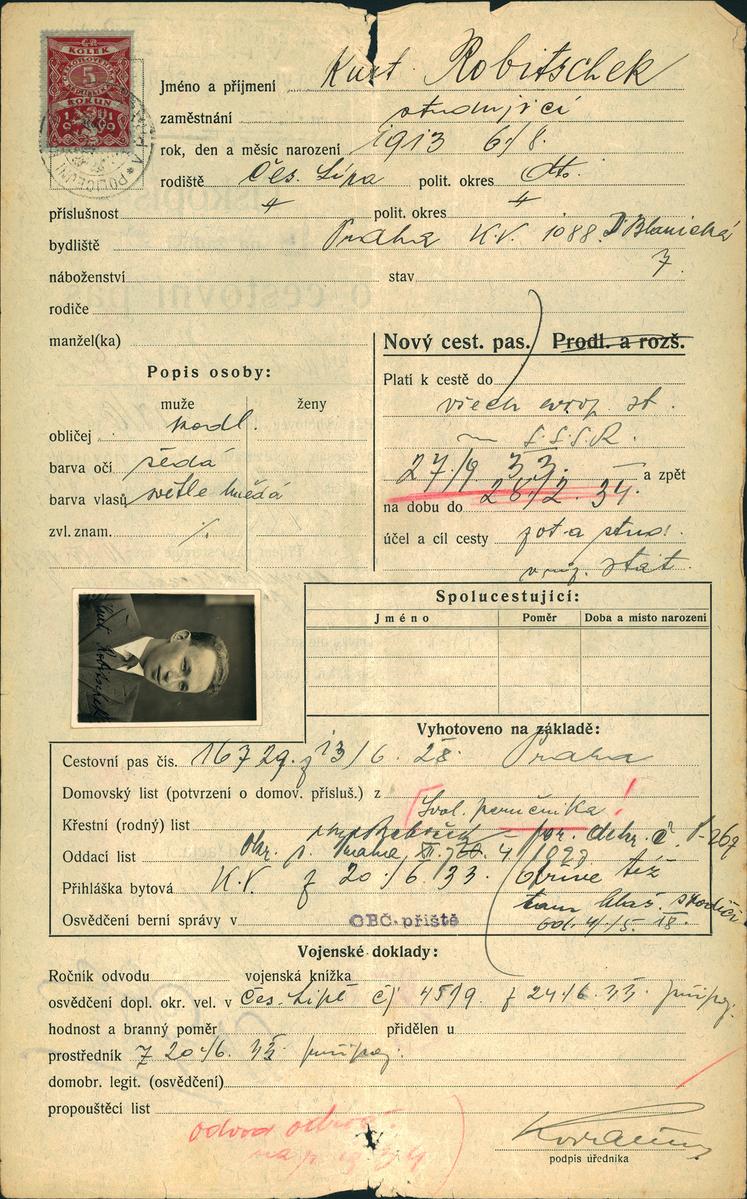 ČR
KOLEK
5
KORUN
1931
Jméno a příjmení Kurt Robitschek
zaměstnání studující
rok, den a měsíc narození 1913 6./8.
rodiště Čes. Lípa polit. okres dto.
příslušnost polit. okres
bydliště Praha K.V. 1088 Blanická
7
náboženství stav
rodiče
manžel(ka)
Nový cest. pas. Prodl. a rozš.
Popis osoby:
muže ženy
obličej podl.
barva očí šedá
barva vlasů světle hnědá
zvl. znam. %
Platí k cestě do
všech evrop. st.
S.S.S.R.
27/9 33. a zpět
na dobu do 28/2. 34.
účel a cíl cesty pot a stud.
Kurt Robitschek
Spolucestující:
Jméno Poměr Doba a místo narození
Vyhotoveno na základě:
Cestovní pas čís. 16729 z 13/6. 28. Praha
Domovský list (potvrzení o domov. přísluš.) z
Svol. poručníka!
Křestní (rodný) list
Oddací list
Přihláška bytová K.V. z 20./6. 33.
Osvědčení berní správy v OBČ. příště
Vojenské doklady:
Ročník odvodu vojenská knížka
osvědčení dopl. okr. vel. v Čes. Lípě čj 4519. z 24./6. 33.
hodnost a branný poměr přidělen u
prostředník z 20./6. 33.
domobr. legit. (osvědčení)
propouštěcí list
odvod
podpis úředníka